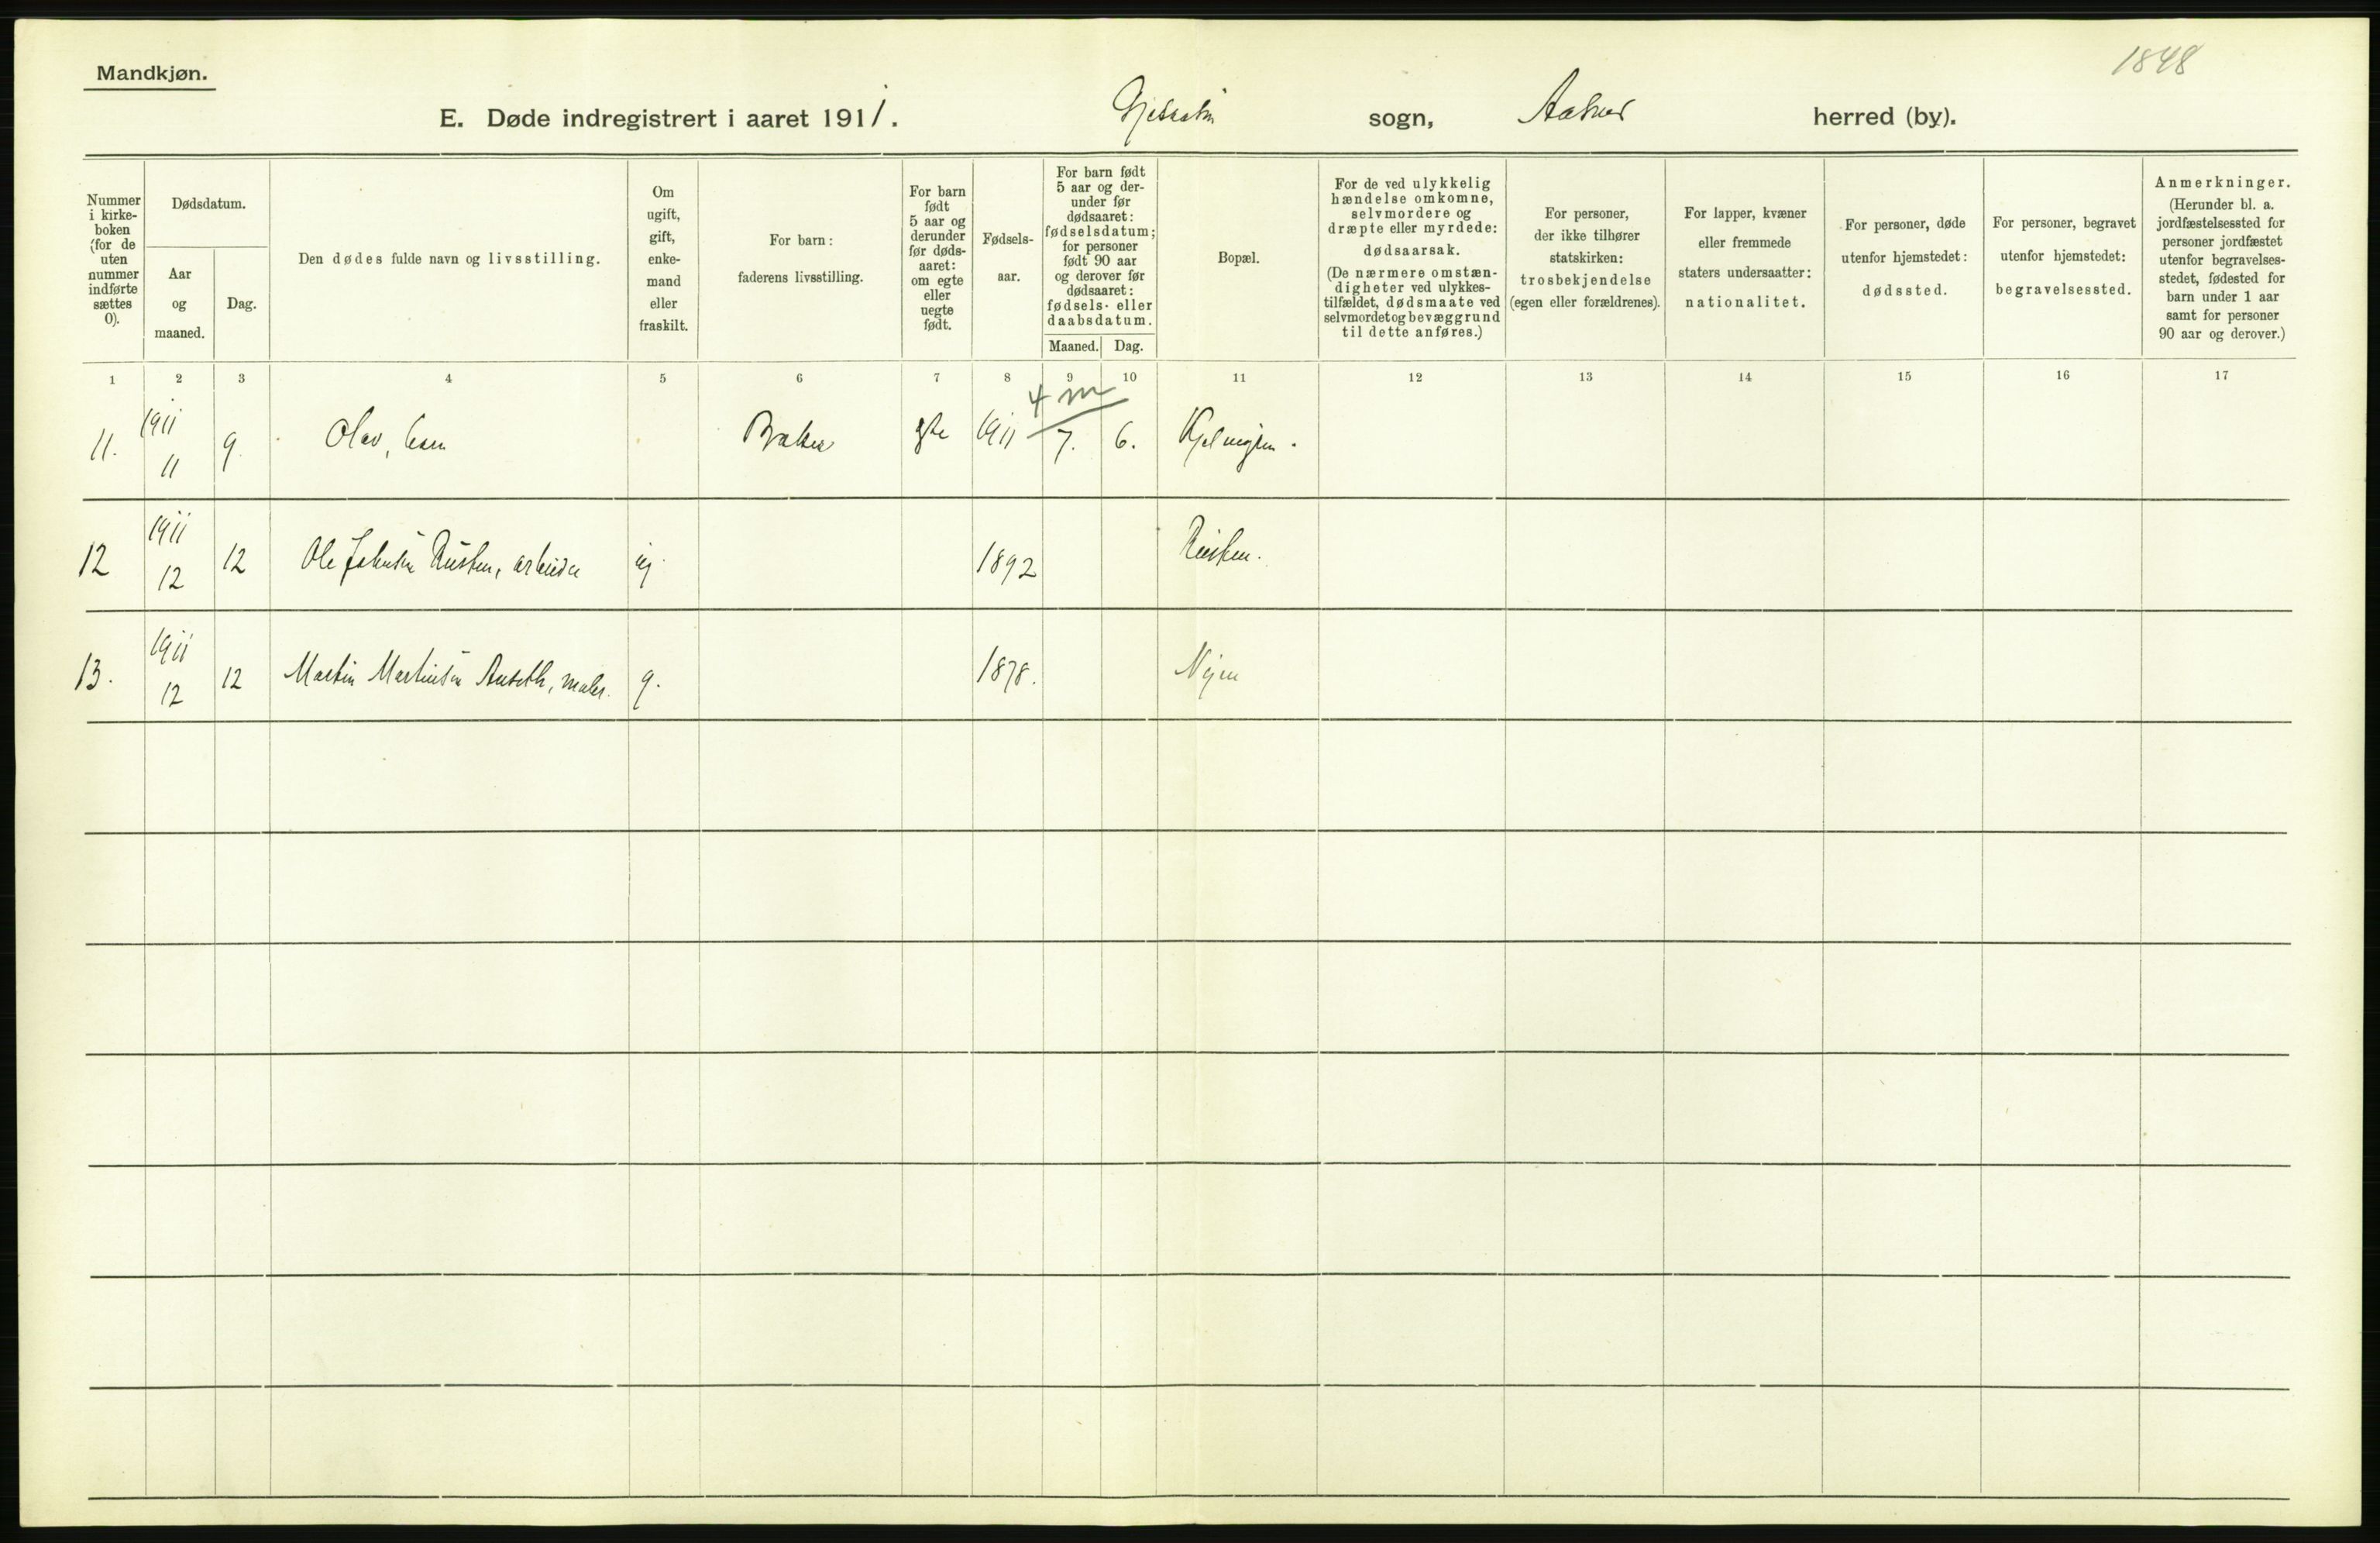 1848
Mandkjøn.
E. Døde indregistrert i aaret 1911. sogn, herred (by).
Nummer i kirke-boken (for de uten nummer indførte sættes 0).
Dødsdatum.
Aar og maaned.
Dag.
Den dødes fulde navn og livsstilling.
Om ugift, gift, enke-mand eller fraskilt.
For barn: faderens livsstilling.
For barn født 5 aar og derunder før døds-aaret: om egte eller uegte født.
Fødsels-aar.
For barn født 5 aar og der-under før dødsaaret: fødselsdatum; for personer født 90 aar og derover før dødsaaret: fødsels- eller daabsdatum.
Maaned.
Dag.
Bopæl.
For de ved ulykkelig hændelse omkomne, selvmordere og dræpte eller myrdede: dødsaarsak. (De nærmere omstæn-digheter ved ulykkes-tilfældet, dødsmaate ved selvmordet og bevæggrund til dette anføres.)
For personer, der ikke tilhører statskirken: trosbekjendelse (egen eller forældrenes).
For lapper, kvæner eller fremmede staters undersaatter: nationalitet.
For personer, døde utenfor hjemstedet: dødssted.
For personer, begravet utenfor hjemstedet: begravelsessted.
Anmerkninger. (Herunder bl. a. jordfæstelsessted for personer jordfæstet utenfor begravelses-stedet, fødested for barn under 1 aar samt for personer 90 aar og derover.)
1 2 3 4 5 6 7 8 9 10 11 12 13 14 15 16 17
4 m
11. 1911 11 9. Olav, barn Baker egte 1911 7. 6.
12 1911 12 12 Ole Johnsen Rusten, arbeider ug. 1892 Rusten.
13. 1911 12 12 Martin Martinsen Anseth, maler. g. 1878. Nyen